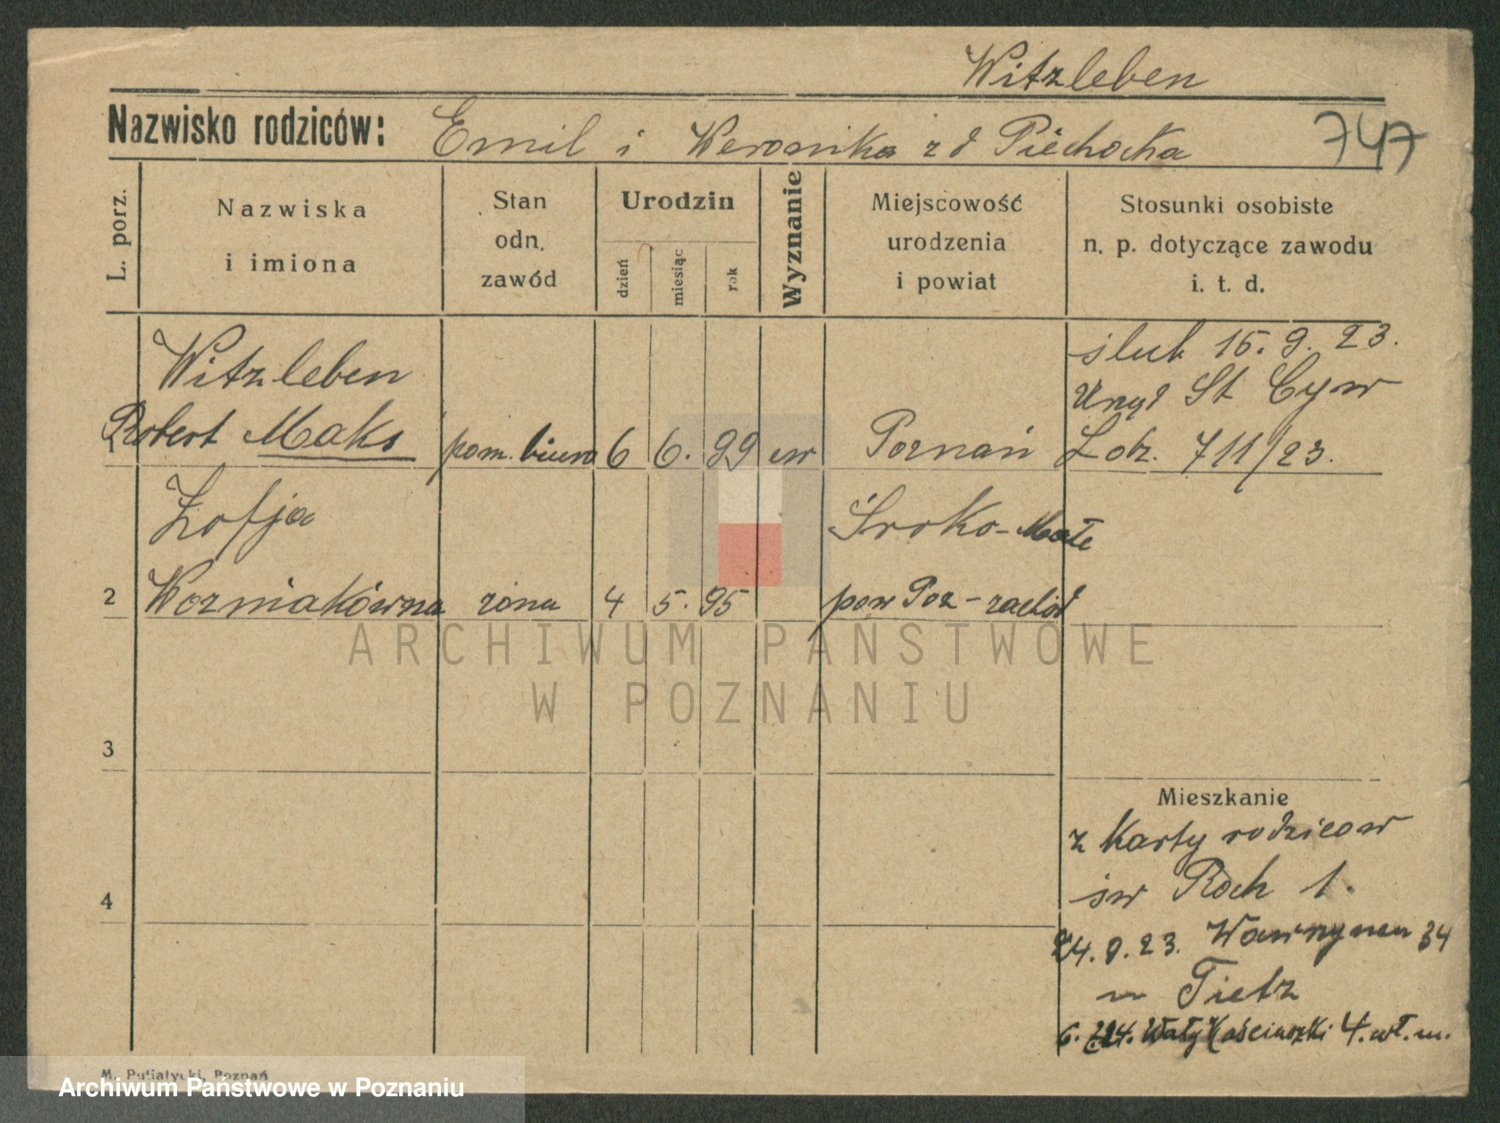 Witzleben
Nazwisko rodziców: Emil i Weronika z d Piechocka 747
L. porz.
Nazwiska
i imiona
Stan
odn.
zawód
Urodzin
dzień
miesiąc
rok
Wyznanie
Miejscowość
urodzenia
i powiat
Stosunki osobiste
n. p. dotyczące zawodu
i. t. d.
Witzleben
1 Robert Maks pom. biura 6 6. 99 ew Poznań
ślub 15. 9. 23.
Urząd St Cyw
L dz. 711/23.
Zofja
2 Wozniakówna żona 4 5. 95
Sroko-Małe
pow Poz-zachód
3
4
Mieszkanie
z Karty rodzicow
św Roch 1.
24. 9. 23. Wawrzynca 34
Tietz
6. Wały Kościuszki 4. wł. m.
ARCHIWUM PAŃSTWOWE
W POZNANIU
M. Putiatycki, Poznań
Archiwum Państwowe w Poznaniu